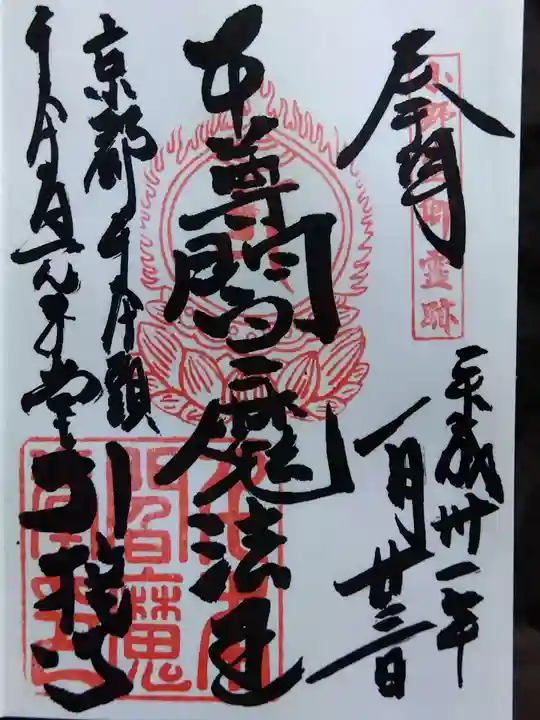 奉拝
小野篁卿霊跡
平成卅一年
一月廿三日
本尊閻魔法王
京都千本頭
千本ゑんま堂 引接寺